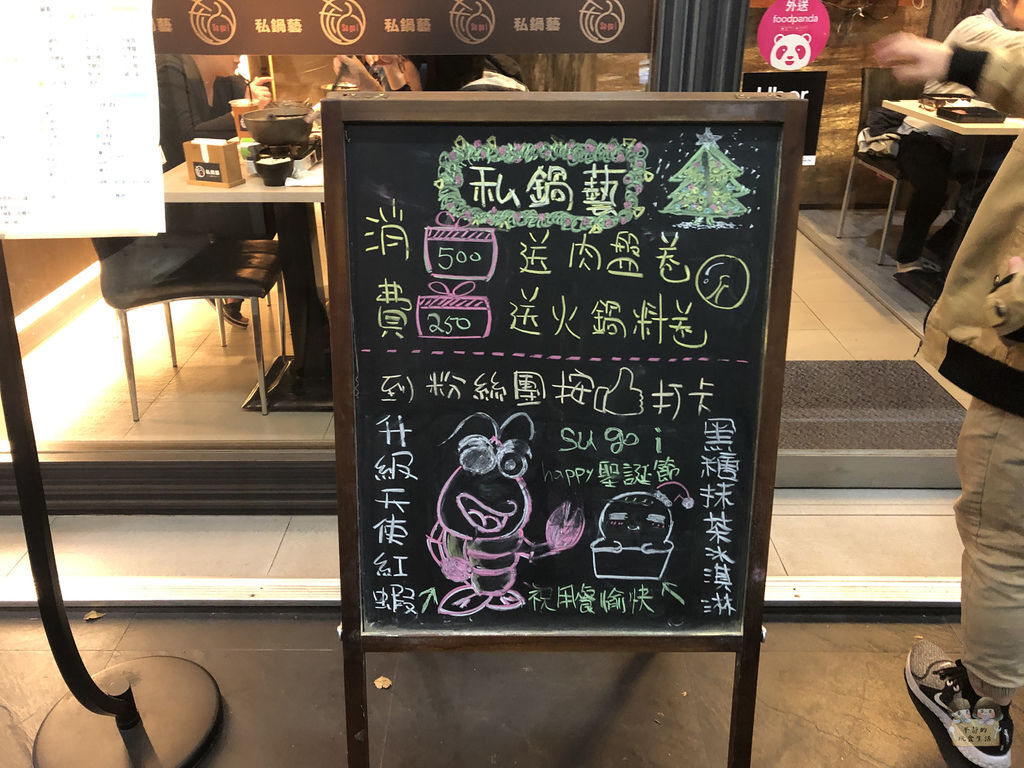 私鍋藝
私鍋藝
私鍋藝
外送
foodpanda
Uber
私鍋藝
私鍋藝
消費
500 送肉盤卷
250 送火鍋料卷
到粉絲團按 打卡
升級天使紅蝦
su go i
happy聖誕節
黑糖抹茶冰淇淋
祝用餐愉快